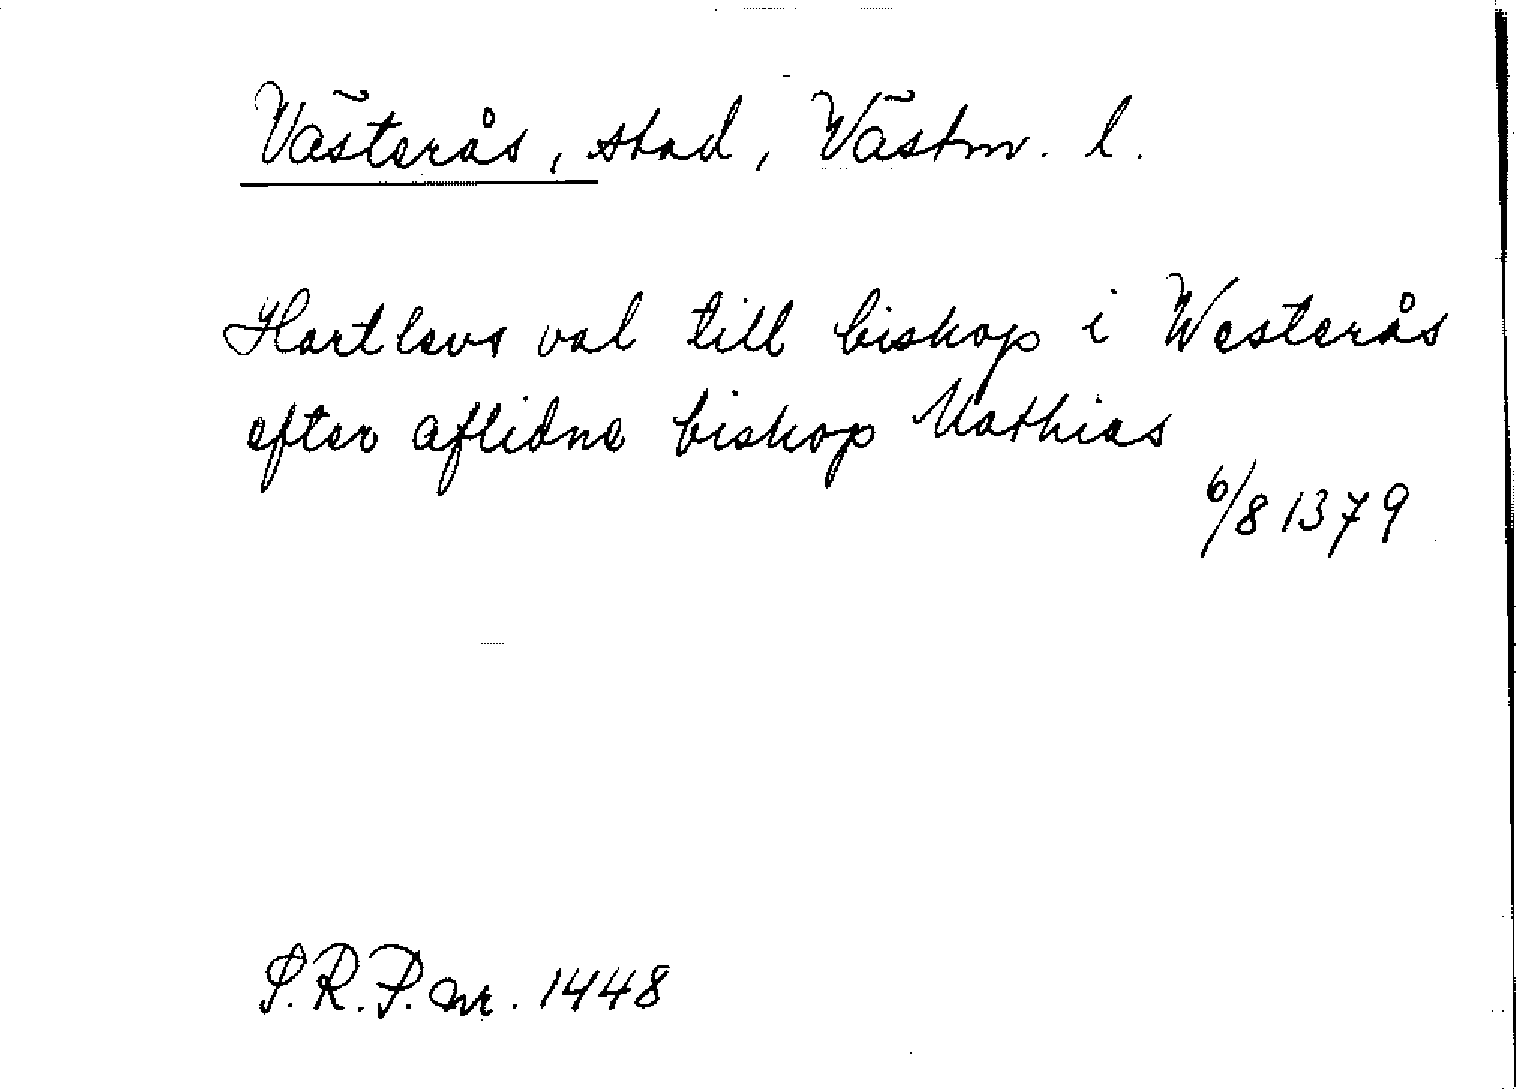 Västerås, stad, Västm. l.
Hartlevs val till biskop i Westerås
efter aflidne biskop Mathias
6/8 1379
S.R.P. nr. 1448